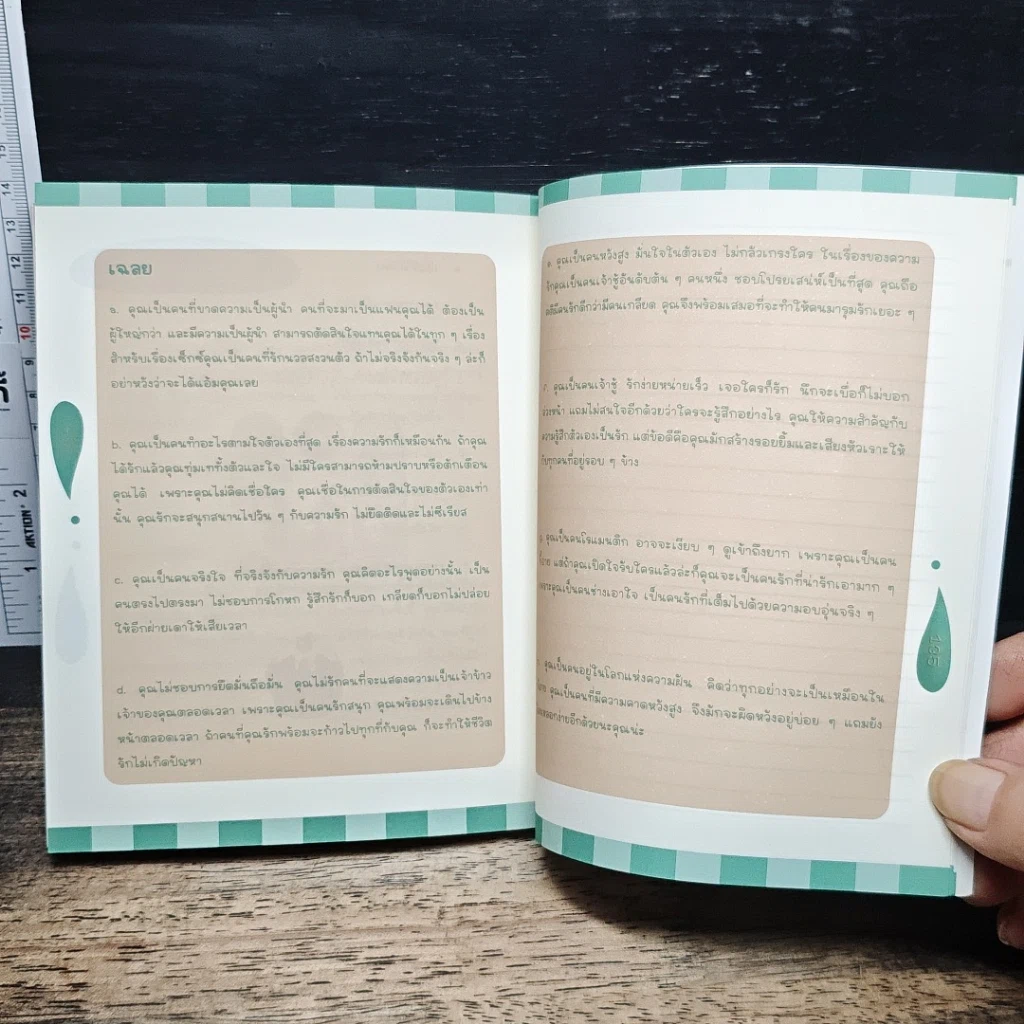 เฉลย
a. คุณเป็นคนที่ขาดความเป็นผู้นำ คนที่จะมาเป็นแฟนคุณได้ ต้องเป็น
ผู้ใหญ่กว่า และมีความเป็นผู้นำ สามารถตัดสินใจแทนคุณได้ในทุก ๆ เรื่อง
สำหรับเรื่องเซ็กซ์คุณเป็นคนที่รักนวลสงวนตัว ถ้าไม่จริงจังกันจริง ๆ ล่ะก็
อย่าหวังว่าจะได้แอ้มคุณเลย
b. คุณเป็นคนทำอะไรตามใจตัวเองที่สุด เรื่องความรักก็เหมือนกัน ถ้าคุณ
ได้รักแล้วคุณทุ่มเททั้งตัวและใจ ไม่มีใครสามารถห้ามปราบหรือตักเตือน
คุณได้ เพราะคุณไม่คิดเชื่อใคร คุณเชื่อในการตัดสินใจของตัวเองเท่า
นั้น คุณรักจะสนุกสนานไปวัน ๆ กับความรัก ไม่ยึดติดและไม่ซีเรียส
c. คุณเป็นคนจริงใจ ที่จริงจังกับความรัก คุณคิดอะไรพูดอย่างนั้น เป็น
คนตรงไปตรงมา ไม่ชอบการโกหก รู้สึกรักก็บอก เกลียดก็บอกไม่ปล่อย
ให้อีกฝ่ายเดาให้เสียเวลา
d. คุณไม่ชอบการยึดมั่นถือมั่น คุณไม่รักคนที่จะแสดงความเป็นเจ้าข้าว
เจ้าของคุณตลอดเวลา เพราะคุณเป็นคนรักสนุก คุณพร้อมจะเดินไปข้าง
หน้าตลอดเวลา ถ้าคนที่คุณรักพร้อมจะก้าวไปทุกที่กับคุณ ก็จะทำให้ชีวิต
รักไม่เกิดปัญหา
e. คุณเป็นคนหวังสูง มั่นใจในตัวเอง ไม่กลัวเกรงใคร ในเรื่องของความ
รักคุณเป็นคนเจ้าชู้อันดับต้น ๆ คนหนึ่ง ชอบโปรยเสน่ห์เป็นที่สุด คุณถือ
คติมีคนรักดีกว่ามีคนเกลียด คุณจึงพร้อมเสมอที่จะทำให้คนมารุมรักเยอะ ๆ
f. คุณเป็นคนเจ้าชู้ รักง่ายหน่ายเร็ว เจอใครก็รัก นึกจะเบื่อก็ไม่บอก
ล่วงหน้า แถมไม่สนใจอีกด้วยว่าใครจะรู้สึกอย่างไร คุณให้ความสำคัญกับ
ความรู้สึกตัวเองเป็นรัก แต่ข้อดีคือคุณมักสร้างรอยยิ้มและเสียงหัวเราะให้
กับทุกคนที่อยู่รอบ ๆ ข้าง
คุณเป็นคนโรแมนติก อาจจะเงียบ ๆ ดูเข้าถึงยาก เพราะคุณเป็นคน
แต่ถ้าคุณเปิดใจรับใครแล้วล่ะก็คุณจะเป็นคนรักที่น่ารักเอามาก ๆ
เพราะคุณเป็นคนช่างเอาใจ เป็นคนรักที่เต็มไปด้วยความอบอุ่นจริง ๆ
คุณเป็นคนอยู่ในโลกแห่งความฝัน คิดว่าทุกอย่างจะเป็นเหมือนใน
คุณเป็นคนที่มีความคาดหวังสูง จึงมักจะผิดหวังอยู่บ่อย ๆ แถมยัง
หลอกง่ายอีกด้วยนะคุณน่ะ
105
AKTION